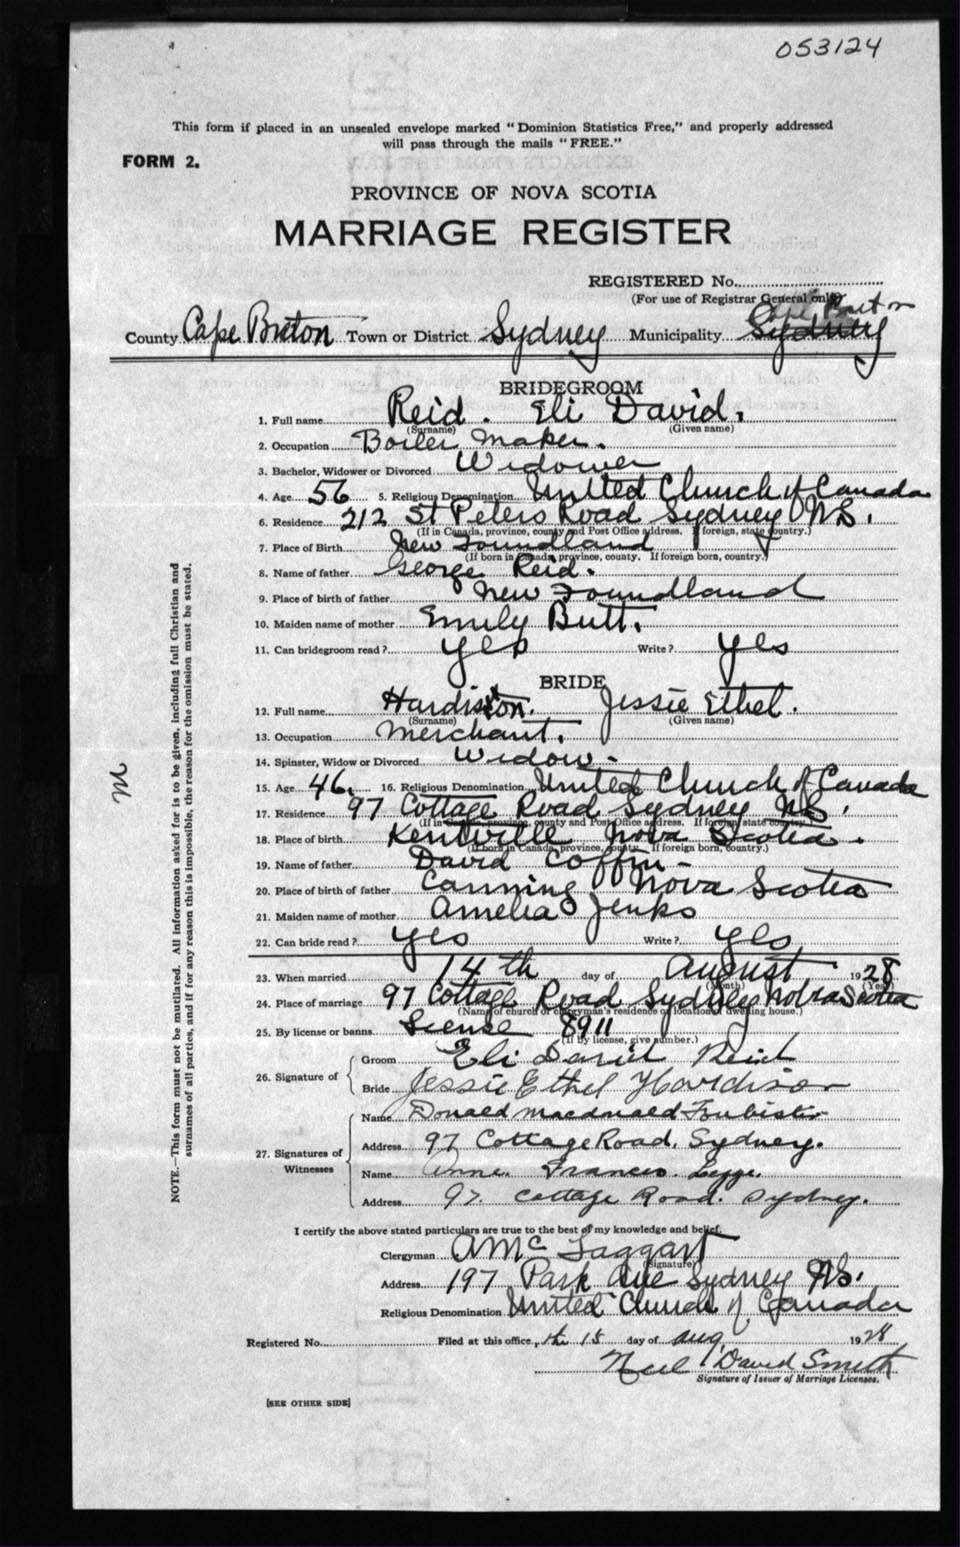 053124
This form if placed in an unsealed envelope marked "Dominion Statistics Free," and properly addressed
will pass through the mails "FREE."
FORM 2.
PROVINCE OF NOVA SCOTIA
MARRIAGE REGISTER
REGISTERED No.
(For use of Registrar General only)
Cape Breton
County Cape Breton Town or District Sydney Municipality Sydney
BRIDEGROOM
1. Full name Reid. Eli David.
(Surname) (Given name)
2. Occupation Boiler Maker.
3. Bachelor, Widower or Divorced Widower
4. Age 56 5. Religious Denomination United Church of Canada
6. Residence 212 St Peters Road Sydney N.S.
(If in Canada, province, county and Post Office address. If foreign, state country.)
7. Place of Birth New Foundland
(If born in Canada, province, county. If foreign born, country.)
8. Name of father George Reid.
9. Place of birth of father New Foundland
10. Maiden name of mother Emily Butt.
11. Can bridegroom read? Yes Write? Yes
BRIDE
12. Full name Hardiston. Jessie Ethel.
(Surname) (Given name)
13. Occupation Merchant.
14. Spinster, Widow or Divorced Widow -
15. Age 46. 16. Religious Denomination United Church of Canada
17. Residence 97 Cottage Road Sydney N.S.
(If in Canada, province, county and Post Office address. If foreign state country.)
18. Place of birth Kentville Nova Scotia.
(If born in Canada, province, county. If foreign born, country.)
19. Name of father David Coffin -
20. Place of birth of father Canning Nova Scotia
21. Maiden name of mother Amelia Jenks
22. Can bride read? Yes Write? Yes
23. When married 14th day of August 1928
(Month) (Year)
24. Place of marriage 97 Cottage Road Sydney Nova Scotia
(Name of church or clergyman's residence or location of dwelling house.)
25. By license or banns License 8911
(If by license, give number.)
26. Signature of Groom Eli David Reid
Bride Jessie Ethel Hardison
27. Signatures of Witnesses Name Donald Macdonald Foubister
Address 97 Cottage Road, Sydney.
Name Anne Frances Legge.
Address 97 Cottage Road. Sydney.
I certify the above stated particulars are true to the best of my knowledge and belief.
Clergyman A Mc Taggart
(Signature)
Address 197 Park Ave Sydney N.S.
Religious Denomination United Church of Canada
Registered No. Filed at this office, the 18 day of Aug 1928
Neil David Smith
Signature of Issuer of Marriage Licenses.
[SEE OTHER SIDE]
NOTE.—This form must not be mutilated. All information asked for is to be given, including full Christian and
surnames of all parties, and if for any reason this is impossible, the reason for the omission must be stated.
M